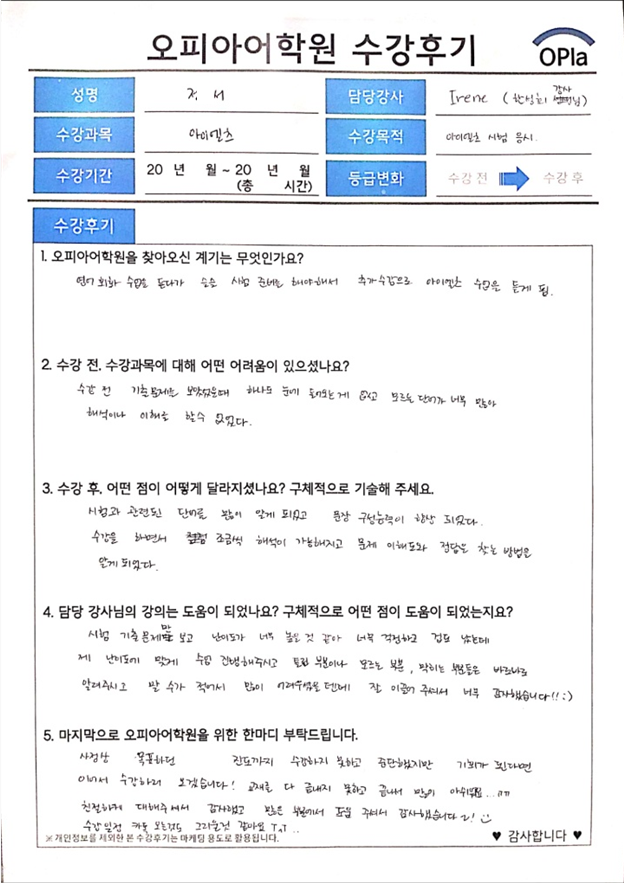 오피아어학원 수강후기
OPIa
성명 담당강사 Irene
수강과목 아이엘츠 수강목적 아이엘츠 시험 응시.
수강기간 20 년 월 ~ 20 년 월
(총 시간) 등급변화 수강 전 수강 후
수강후기
1. 오피아어학원을 찾아오신 계기는 무엇인가요?
영어 회화 수업을 듣다가 슬슬 시험 준비를 해야해서 추가수강으로 아이엘츠 수업을 듣게 됨.
2. 수강 전, 수강과목에 대해 어떤 어려움이 있으셨나요?
수강 전 기출문제를 보았을때 하나도 눈에 들어오는게 없고 모르는 단어가 너무 많아
해석이나 이해를 할수 없었다.
3. 수강 후, 어떤 점이 어떻게 달라지셨나요? 구체적으로 기술해 주세요.
시험과 관련된 단어를 많이 알게 되었고 문장 구성능력이 향상 되었다.
수강을 하면서 점점 조금씩 해석이 가능해지고 문제 이해도와 정답을 찾는 방법을
알게 되었다.
4. 담당 강사님의 강의는 도움이 되었나요? 구체적으로 어떤 점이 도움이 되었는지요?
시험 기출문제만 보고 난이도가 너무 높을 것 같아 너무 걱정하고 겁도 났는데
제 난이도에 맞게 수업 진행해주시고 토픽 부분이나 모르는 부분, 막히는 부분들은 바로바로
알려주시고 말 수가 적어서 많이 어려우셨을 텐데 잘 이끌어 주셔서 너무 감사했습니다!! :)
5. 마지막으로 오피아어학원을 위한 한마디 부탁드립니다.
사정상 목표하던 진도까지 수강하지 못하고 중단했지만 기회가 된다면
이어서 수강하러 오겠습니다! 교재를 다 끝내지 못하고 끝나서 많이 아쉬워요...ㅠㅠ
친절하게 대해주셔서 감사했고 많은 부분에서 도움 주셔서 감사했습니다!
수강일정 카톡 오는것도 그리울것 같아요 T^T ..
※개인정보를 제외한 본 수강후기는 마케팅 용도로 활용됩니다. ♥ 감사합니다 ♥